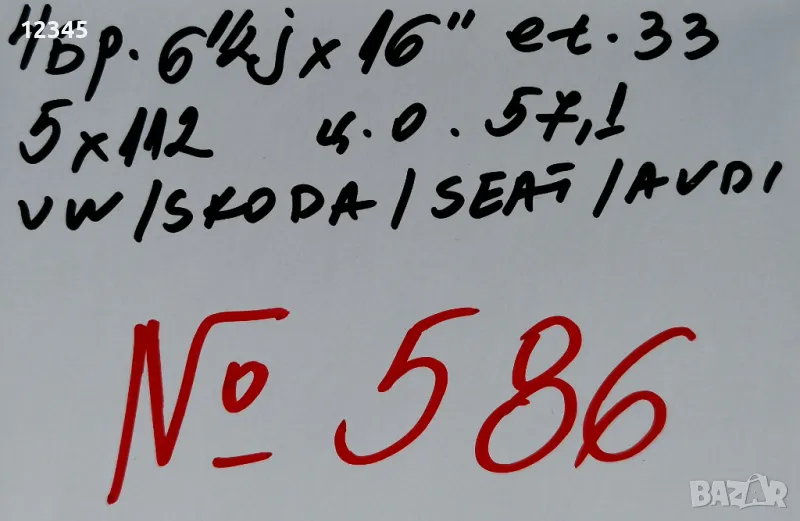 12345
4бр. 6½jx16" et.33
5x112 ц.о. 57,1
VW/SKODA/SEAT/AUDI
№ 586
BAZAR